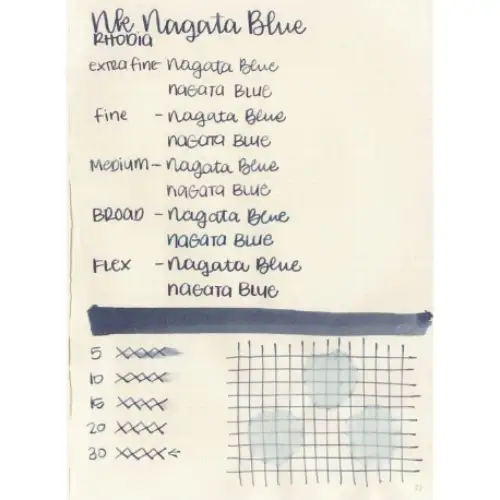 NK Nagata Blue
RHODIA
extra fine - Nagata Blue
NAGATA BLUE
Fine - Nagata Blue
NAGATA BLUE
Medium - Nagata Blue
NAGATA BLUE
BROAD - Nagata Blue
NAGATA BLUE
FLEX - Nagata Blue
NAGATA BLUE
5 XXXX
10 XXXX
15 XXXX
20 XXXX
30 XXXX ←